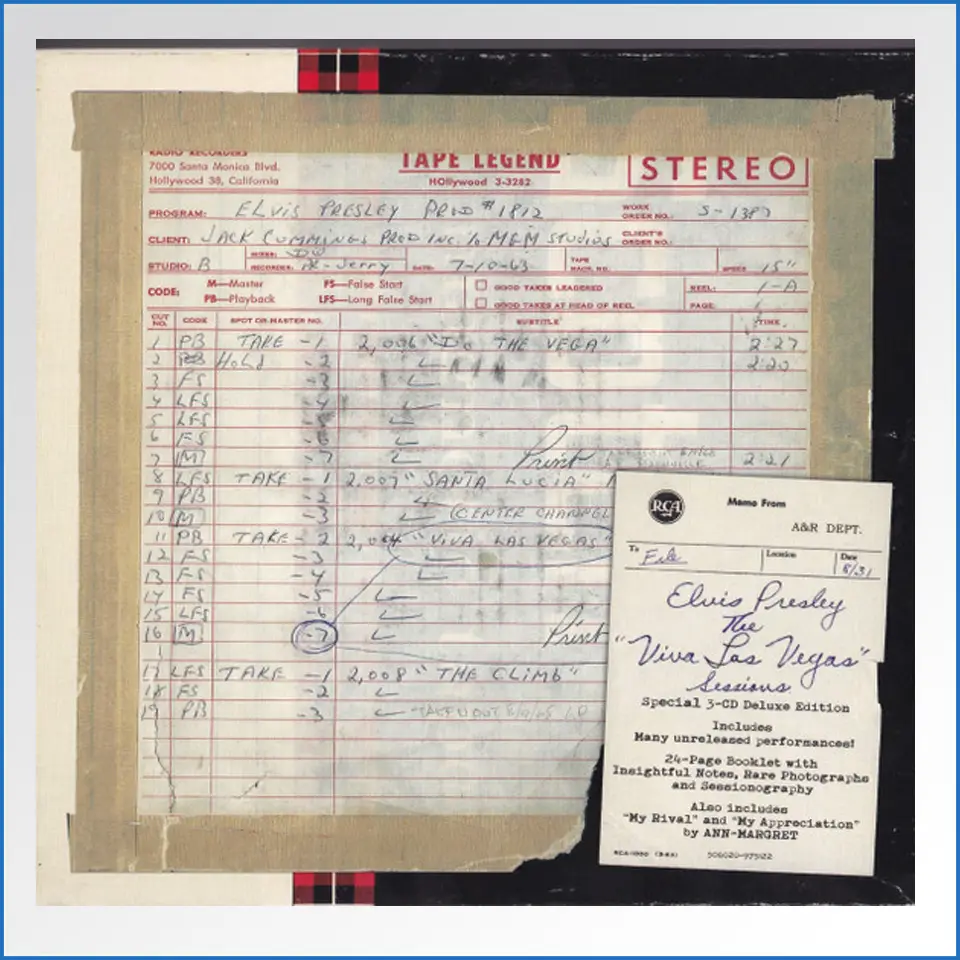 RADIO RECORDERS
7000 Santa Monica Blvd.
Hollywood 38, California
TAPE LEGEND
HOllywood 3-3282
STEREO
PROGRAM: ELVIS PRESLEY PROD #1812
WORK ORDER NO.: S-1387
CLIENT: JACK CUMMINGS PROD INC. % MGM STUDIOS
CLIENT'S ORDER NO.:
STUDIO: B
MIXER:
RECORDER: Jerry
DATE: 7-10-63
TAPE MACH. NO.
SPEED 15"
CODE:
M—Master FS—False Start
PB—Playback LFS—Long False Start
GOOD TAKES LEADERED
GOOD TAKES AT HEAD OF REEL
REEL: 1-A
PAGE:
CUT NO. CODE SPOT OR MASTER NO. SUBTITLE TIME
1 PB TAKE -1 2,006 " THE VEGA" 2:27
2 PB Hold -2 2:20
3 FS -3
4 LFS -4
5 LFS
6 FS -6
7 M -7 Print 2:21
8 LFS TAKE -1 2,007 "SANTA LUCIA"
9 PB -2
10 M -3 (CENTER CHANNEL
11 PB TAKE -2 2,004 "VIVA LAS VEGAS"
12 FS -3
13 FS -4
14 FS -5
15 LFS -6
16 M -7 Print
17 LFS TAKE -1 2,008 "THE CLIMB"
18 FS -2
19 PB -3
RCA
Memo From
A&R DEPT.
To File
Location
Date 8/31
Elvis Presley
The
"Viva Las Vegas"
Sessions
Special 3-CD Deluxe Edition
Includes
Many unreleased performances!
24-Page Booklet with
Insightful Notes, Rare Photographs
and Sessionography
Also includes
"My Rival" and "My Appreciation"
by ANN-MARGRET
506020-975122